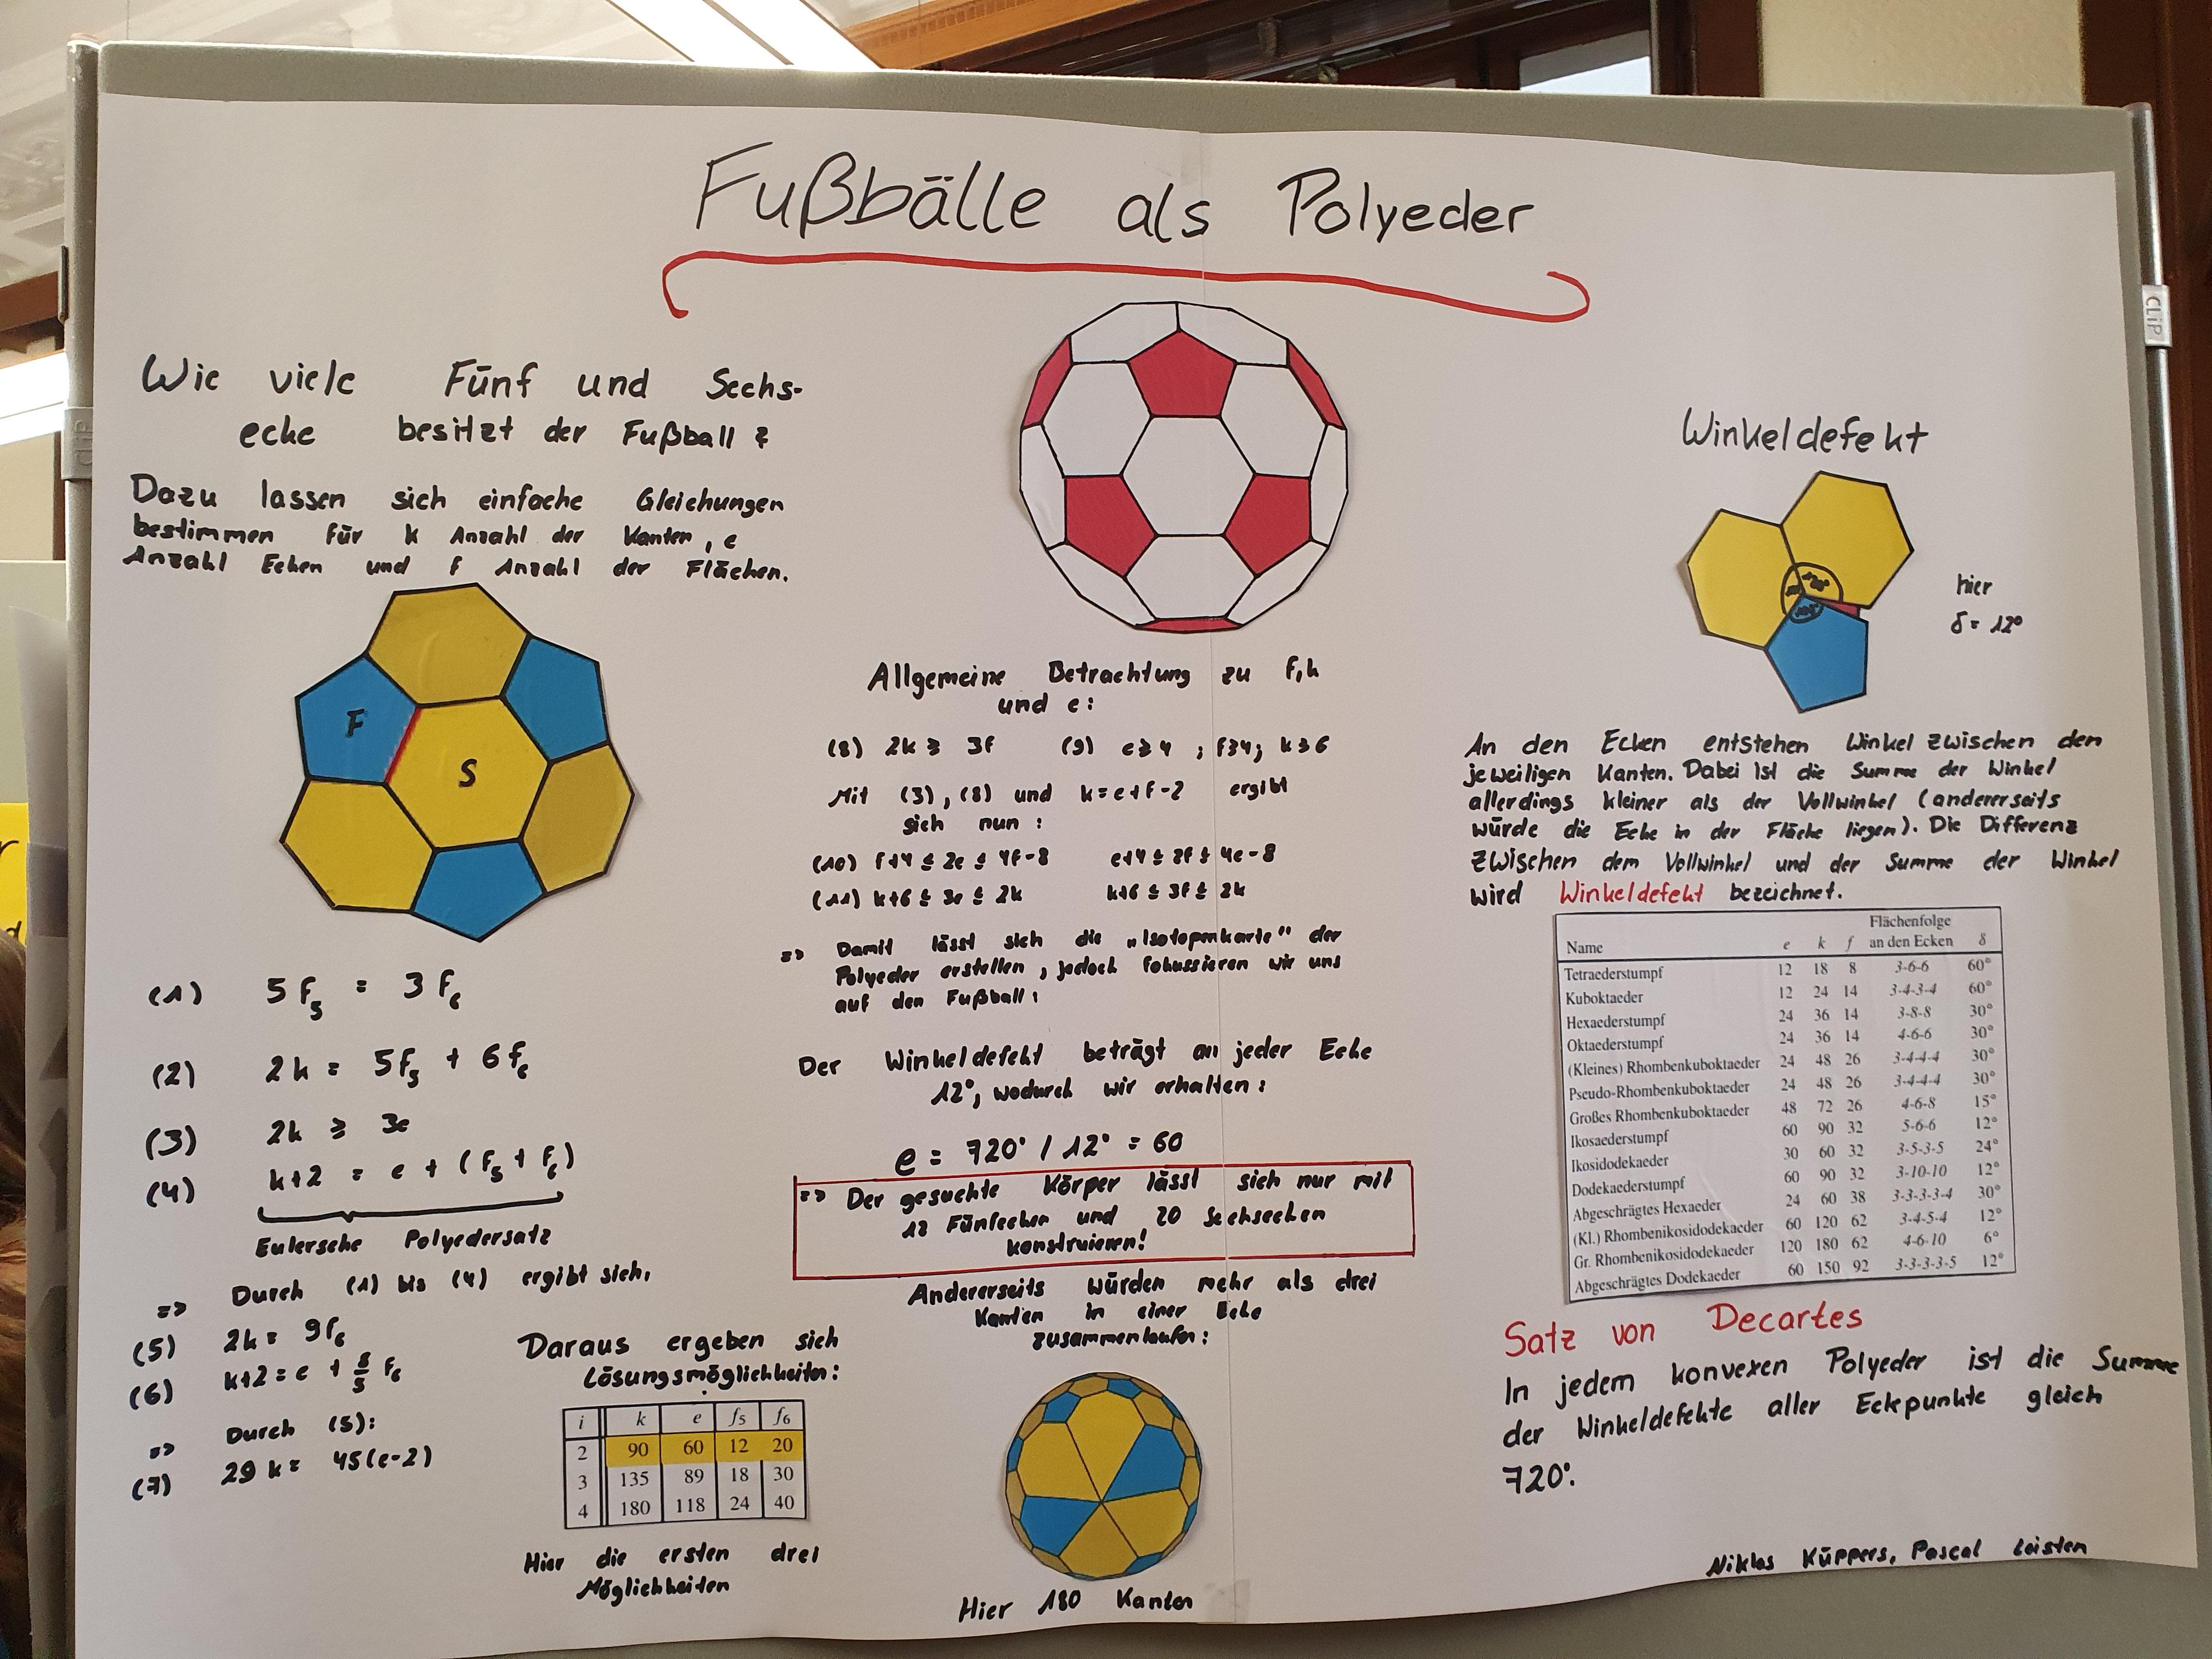 Fußbälle als Polyeder
Wie viele Fünf und Sechs-
ecke besitzt der Fußball ?
Dazu lassen sich einfache Gleichungen
bestimmen für k Anzahl der Kanten, e
Anzahl Ecken und f Anzahl der Flächen.
F
S
(1) 5 f₅ = 3 f₆
(2) 2k = 5f₅ + 6f₆
(3) 2k ≥ 3e
(4) k+2 = e + (f₅ + f₆)
Eulersche Polyedersatz
=> Durch (1) bis (4) ergibt sich,
(5) 2k = 9f₆
(6) k+2 = e + 8/5 f₆
=> Durch (5):
(7) 29 k = 45(e-2)
Daraus ergeben sich
Lösungsmöglichkeiten:
i k e f₅ f₆
2 90 60 12 20
3 135 89 18 30
4 180 118 24 40
Hier die ersten drei
Möglichkeiten
Allgemeine Betrachtung zu f,k
und e:
(8) 2k ≥ 3f (9) e≥4 ; f≥4; k≥6
Mit (3), (8) und k=e+f-2 ergibt
sich nun :
(10) f+4 ≤ 2e ≤ 4f-8 e+4 ≤ 2f ≤ 4e-8
(11) k+6 ≤ 3e ≤ 2k k+6 ≤ 3f ≤ 2k
=> Damit lässt sich die „Isotopenkarte" der
Polyeder erstellen, jedoch fokussieren wir uns
auf den Fußball:
Der Winkeldefekt beträgt an jeder Ecke
12°, wodurch wir erhalten:
e = 720° / 12° = 60
=> Der gesuchte Körper lässt sich nur mit
12 Fünfecken und 20 Sechsecken
konstruieren!
Andererseits würden mehr als drei
Kanten in einer Ecke
zusammenlaufen:
Hier 180 Kanten
Winkeldefekt
hier
δ= 12°
An den Ecken entstehen Winkel zwischen den
jeweiligen Kanten. Dabei ist die Summe der Winkel
allerdings kleiner als der Vollwinkel (andererseits
würde die Ecke in der Fläche liegen). Die Differenz
zwischen dem Vollwinkel und der Summe der Winkel
wird Winkeldefekt bezeichnet.
Flächenfolge
Name e k f an den Ecken δ
Tetraederstumpf 12 18 8 3-6-6 60°
Kuboktaeder 12 24 14 3-4-3-4 60°
Hexaederstumpf 24 36 14 3-8-8 30°
Oktaederstumpf 24 36 14 4-6-6 30°
(Kleines) Rhombenkuboktaeder 24 48 26 3-4-4-4 30°
Pseudo-Rhombenkuboktaeder 24 48 26 3-4-4-4 30°
Großes Rhombenkuboktaeder 48 72 26 4-6-8 15°
Ikosaederstumpf 60 90 32 5-6-6 12°
Ikosidodekaeder 30 60 32 3-5-3-5 24°
Dodekaederstumpf 60 90 32 3-10-10 12°
Abgeschrägtes Hexaeder 24 60 38 3-3-3-3-4 30°
(Kl.) Rhombenikosidodekaeder 60 120 62 3-4-5-4 12°
Gr. Rhombenikosidodekaeder 120 180 62 4-6-10 6°
Abgeschrägtes Dodekaeder 60 150 92 3-3-3-3-5 12°
Satz von Decartes
In jedem konvexen Polyeder ist die Summe
der Winkeldefekte aller Eckpunkte gleich
720°.
Niklas Küppers, Pascal Leisten
CLiP